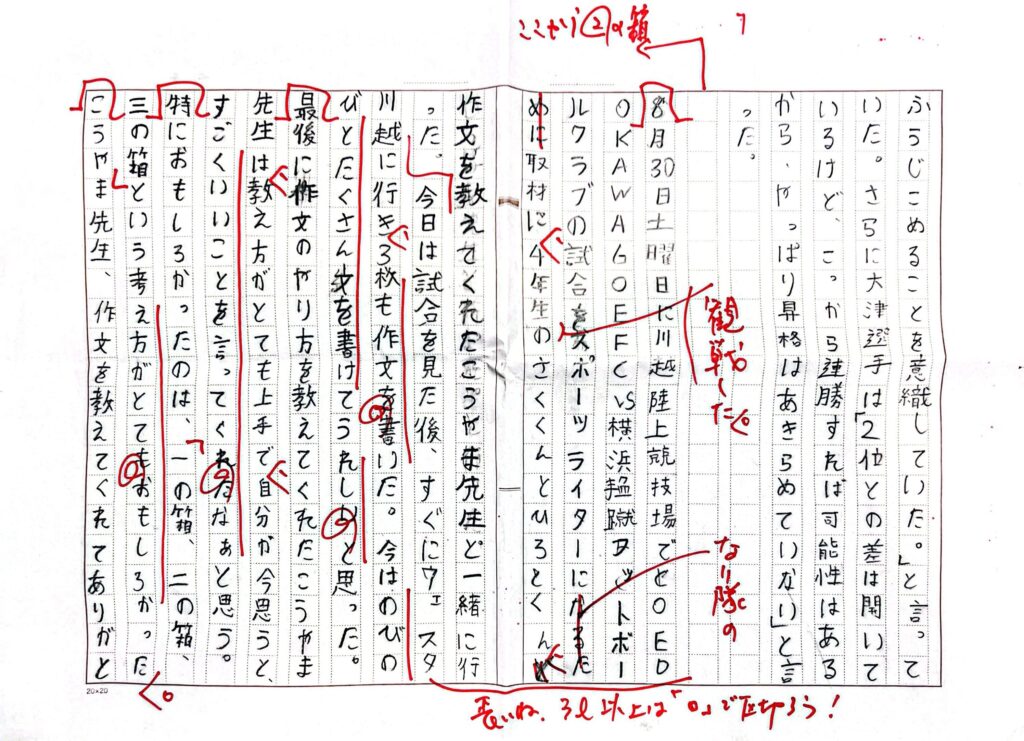 ここから②の箱
ふうじこめることを意識していた。」と言って
いた。さらに大津選手は「2位との差は開いて
いるけど、こっから連勝すれば可能性はある
から、やっぱり昇格はあきらめていない」と言
った。
8月30日土曜日に川越陸上競技場でCOEDO
KAWAGOEFCVS横浜猛蹴フットボー
ルクラブの試合をスポーツライターになるた
めに取材に4年生のさくくんとひろとくんと
観戦した。
なり隊の
作文を教えてくれたこうやま先生と一緒に行
った。今日は試合を見た後、すぐにウェスタ
川越に行き3枚も作文を書いた。今はのびの
びとたくさん文を書けてうれしいと思った。
最後に作文のやり方を教えてくれたこうやま
先生は教え方がとても上手で自分が今思うと、
すごくいいことを言ってくれたなぁと思う。
特におもしろかったのは、一の箱、二の箱、
三の箱という考え方がとてもおもしろかった
こうやま先生、作文を教えてくれてありがと
長いね、3l以上は「。」で区切ろう!
20×20